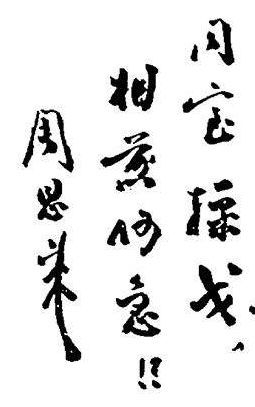 同室操戈、
相煎何急!!
周恩来